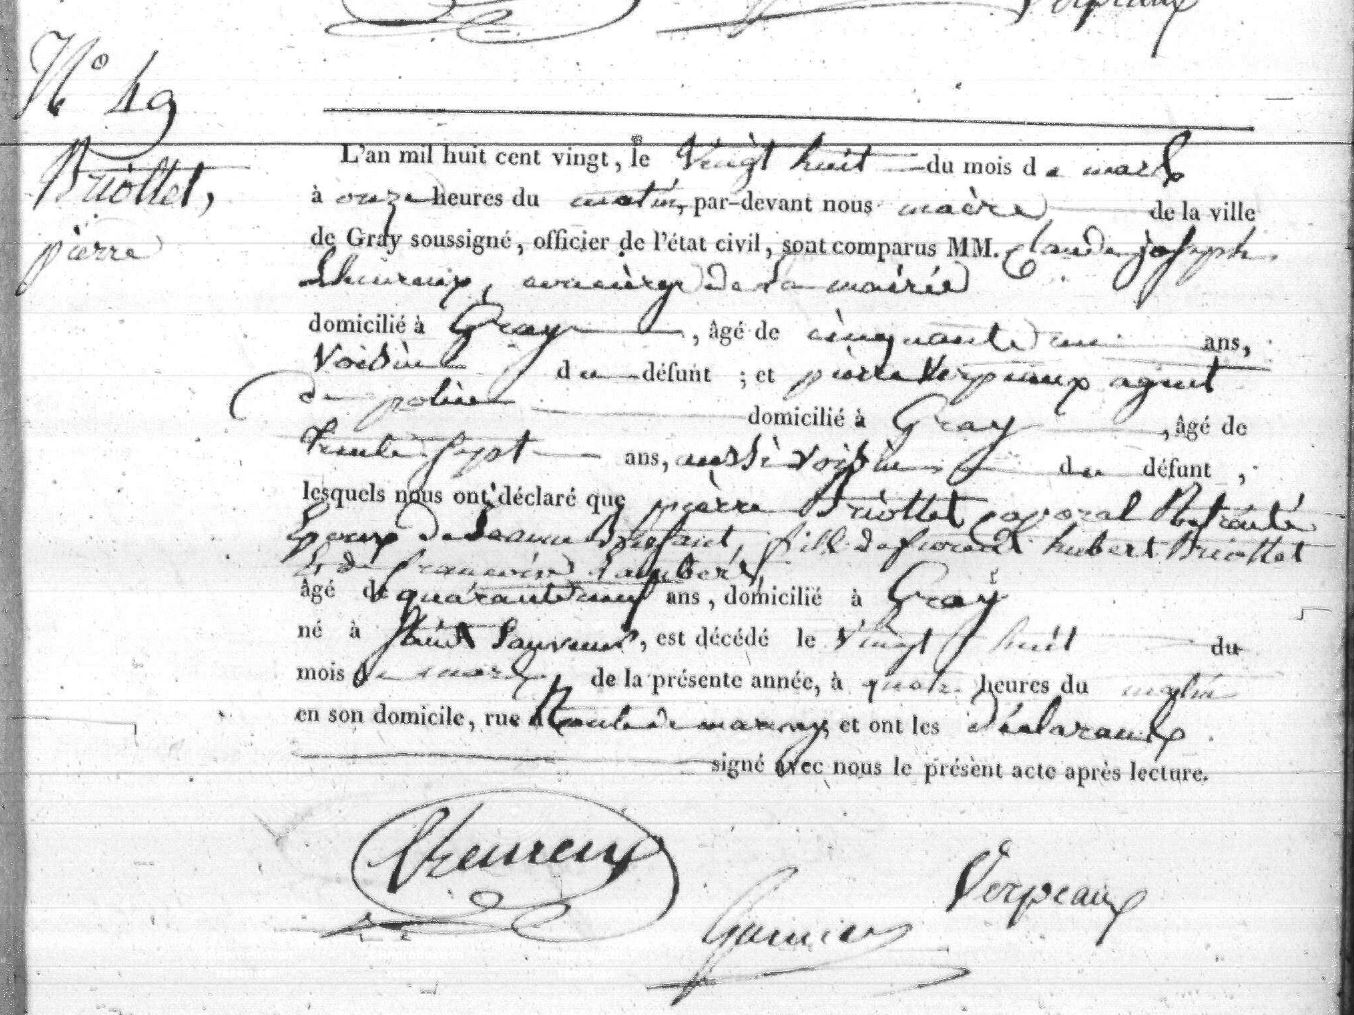 Verpeaux
N° 49
Briottet,
pierre
L'an mil huit cent vingt, le Vingt huit du mois de mars
à onze heures du matin, par-devant nous maire de la ville
de Gray soussigné, officier de l'état civil, sont comparus MM. Claude joseph
Lheureux, concièrge de la mairie
domicilié à Gray, âgé de cinquante un ans,
Voisin du défunt ; et pierre Verpeaux agent
de police domicilié à Gray, âgé de
trente sept ans, aussi voisin du défunt,
lesquels nous ont déclaré que pierre Briottet caporal Retraité
Epoux de Jeanne fille de hubert Briottet
Et de Lambert
âgé de quarante neuf ans, domicilié à Gray
né à Saint Sauveur, est décédé le Vingt huit du
mois de mars de la présente année, à quatre heures du matin
en son domicile, rue et ont les déclarants
signé avec nous le présent acte après lecture.
Lheureux
Verpeaux
Garnier